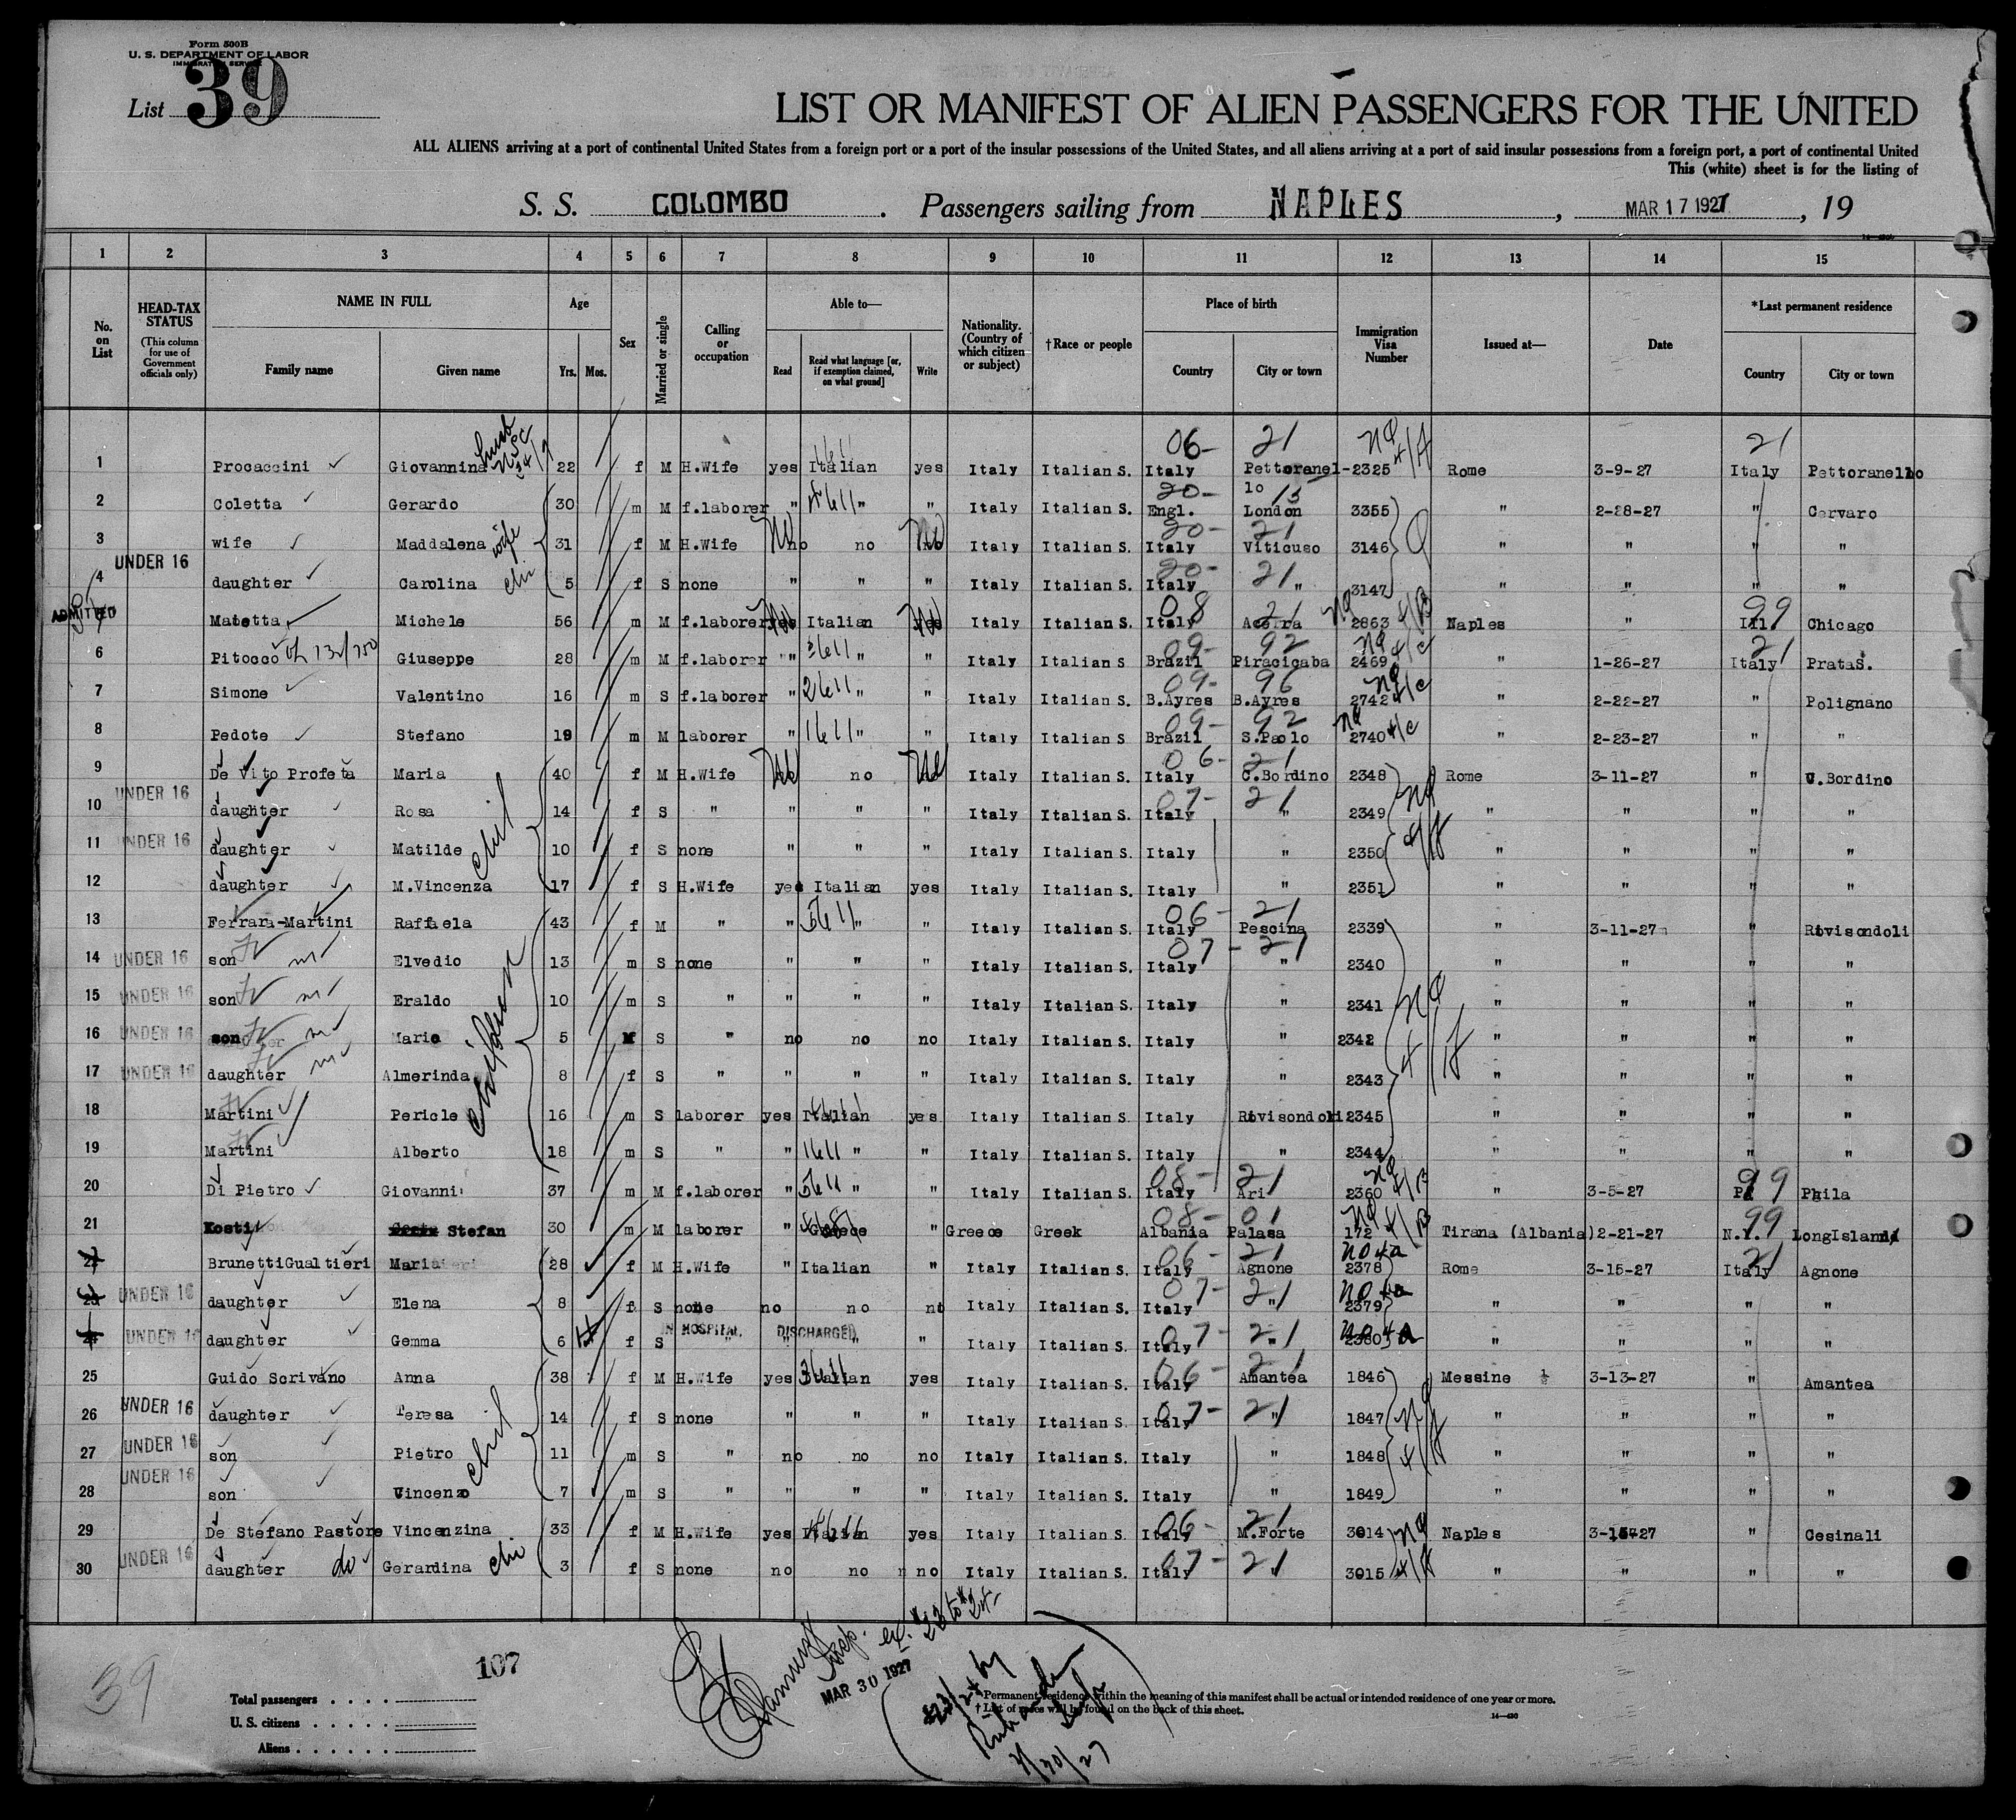 Form 500B
U. S. DEPARTMENT OF LABOR
IMMIGRATION SERVICE
List 39
LIST OR MANIFEST OF ALIEN PASSENGERS FOR THE UNITED
ALL ALIENS arriving at a port of continental United States from a foreign port or a port of the insular possessions of the United States, and all aliens arriving at a port of said insular possessions from a foreign port, a port of continental United
This (white) sheet is for the listing of
S. S. COLOMBO. Passengers sailing from NAPLES, MAR 17 1927, 19
1 2 3 4 5 6 7 8 9 10 11 12 13 14 15
No. on List
HEAD-TAX STATUS (This column for use of Government officials only)
NAME IN FULL Family name Given name
Age Yrs. Mos.
Sex
Married or single
Calling or occupation
Able to— Read Read what language [or, if exemption claimed, on what ground] Write
Nationality. (Country of which citizen or subject)
†Race or people
Place of birth Country City or town
Immigration Visa Number
Issued at—
Date
*Last permanent residence Country City or town
06- 21 21
1 Procaccini Giovannina 22 f M H.Wife yes Italian yes Italy Italian S. Italy Pettoranel-lo 2325 Rome 3-9-27 Italy Pettoranello
2 Coletta Gerardo 30 m M f.laborer " " " Italy Italian S. Engl. London 3355 " 2-28-27 " Cervaro
3 wife Maddalena wife 31 f M H.Wife no no no Italy Italian S. Italy Viticuso 3146 " " " "
4 UNDER 16 daughter Carolina 5 f S none " " " Italy Italian S. Italy " 3147 " " " "
ADMITTED Michele 56 m M f.laborer yes Italian yes Italy Italian S. Italy Acerra 2863 Naples " Ill. Chicago
6 Pitocco Giuseppe 28 m M f.laborer " " " Italy Italian S. Brazil Piracicaba 2469 " 1-26-27 Italy PrataS.
7 Simone Valentino 16 m S f.laborer " " " Italy Italian S. B.Ayres B.Ayres 2742 " 2-22-27 " Polignano
8 Pedote Stefano 19 m M laborer " " " Italy Italian S Brazil S.Paolo 2740 " 2-23-27 " "
9 De Vito Profeta Maria 40 f M H.Wife no Italy Italian S. Italy C.Bordino 2348 Rome 3-11-27 " C.Bordino
10 UNDER 16 daughter Rosa 14 f S " " " " Italy Italian S. Italy " 2349 " " " "
11 UNDER 16 daughter Matilde 10 f S none " " " Italy Italian S. Italy " 2350 " " " "
12 daughter M.Vincenza 17 f S H.Wife yes Italian yes Italy Italian S. Italy " 2351 " " " "
13 Ferrara-Martini Raffaela 43 f M " " " " Italy Italian S. Italy Pescina 2339 " 3-11-27 " Rivisondoli
14 UNDER 16 son Elvedio 13 m S none " " " Italy Italian S. Italy " 2340 " " " "
15 UNDER 16 son Eraldo 10 m S " " " " Italy Italian S. Italy " 2341 " " " "
16 UNDER 16 son Mario 5 M S " no no no Italy Italian S. Italy " 2342 " " " "
17 UNDER 16 daughter Almerinda 8 f S " " " " Italy Italian S. Italy " 2343 " " " "
children
18 Martini Pericle 16 m S laborer yes Italian yes Italy Italian S. Italy Rivisondoli 2345 " " " "
19 Martini Alberto 18 m S " " " " Italy Italian S. Italy " 2344 " " " "
20 Di Pietro Giovanni 37 m M f.laborer " " " Italy Italian S. Italy Ari 2360 " 3-5-27 Pa Phila
21 Kosti Stefan 30 m M laborer " Greece " Greece Greek Albania Palasa 172 Tirana (Albania) 2-21-27 N.Y. LongIsland
22 BrunettiGualtieri Maria 28 f M H.Wife " Italian " Italy Italian S. Italy Agnone 2378 Rome 3-15-27 Italy Agnone
23 UNDER 16 daughter Elena 8 f S none no no no Italy Italian S. Italy " 2379 " " " "
24 UNDER 16 daughter Gemma 6 f S IN HOSPITAL DISCHARGED " " " Italy Italian S. Italy " 2380 " " " "
25 Guido Scrivano Anna 38 f M H.Wife yes Italian yes Italy Italian S. Italy Amantea 1846 Messine 3-13-27 " Amantea
26 UNDER 16 daughter Teresa 14 f S none " " " Italy Italian S. Italy " 1847 " " " "
27 UNDER 16 son Pietro 11 m S " no no no Italy Italian S. Italy " 1848 " " " "
28 UNDER 16 son Vincenzo 7 m S " " " " Italy Italian S. Italy " 1849 " " " "
29 De Stefano Pastore Vincenzina 33 f M H.Wife yes Italian yes Italy Italian S. Italy M.Forte 3014 Naples " Cesinali
30 UNDER 16 daughter do Gerardina 3 f S none no no no Italy Italian S. Italy " 3015 " " " "
39
107
MAR 30 1927
3/30/27
Total passengers . . . .
U. S. citizens . . . . .
Aliens . . . . . .
*Permanent residence within the meaning of this manifest shall be actual or intended residence of one year or more.
†List of races will be found on the back of this sheet.
14—430